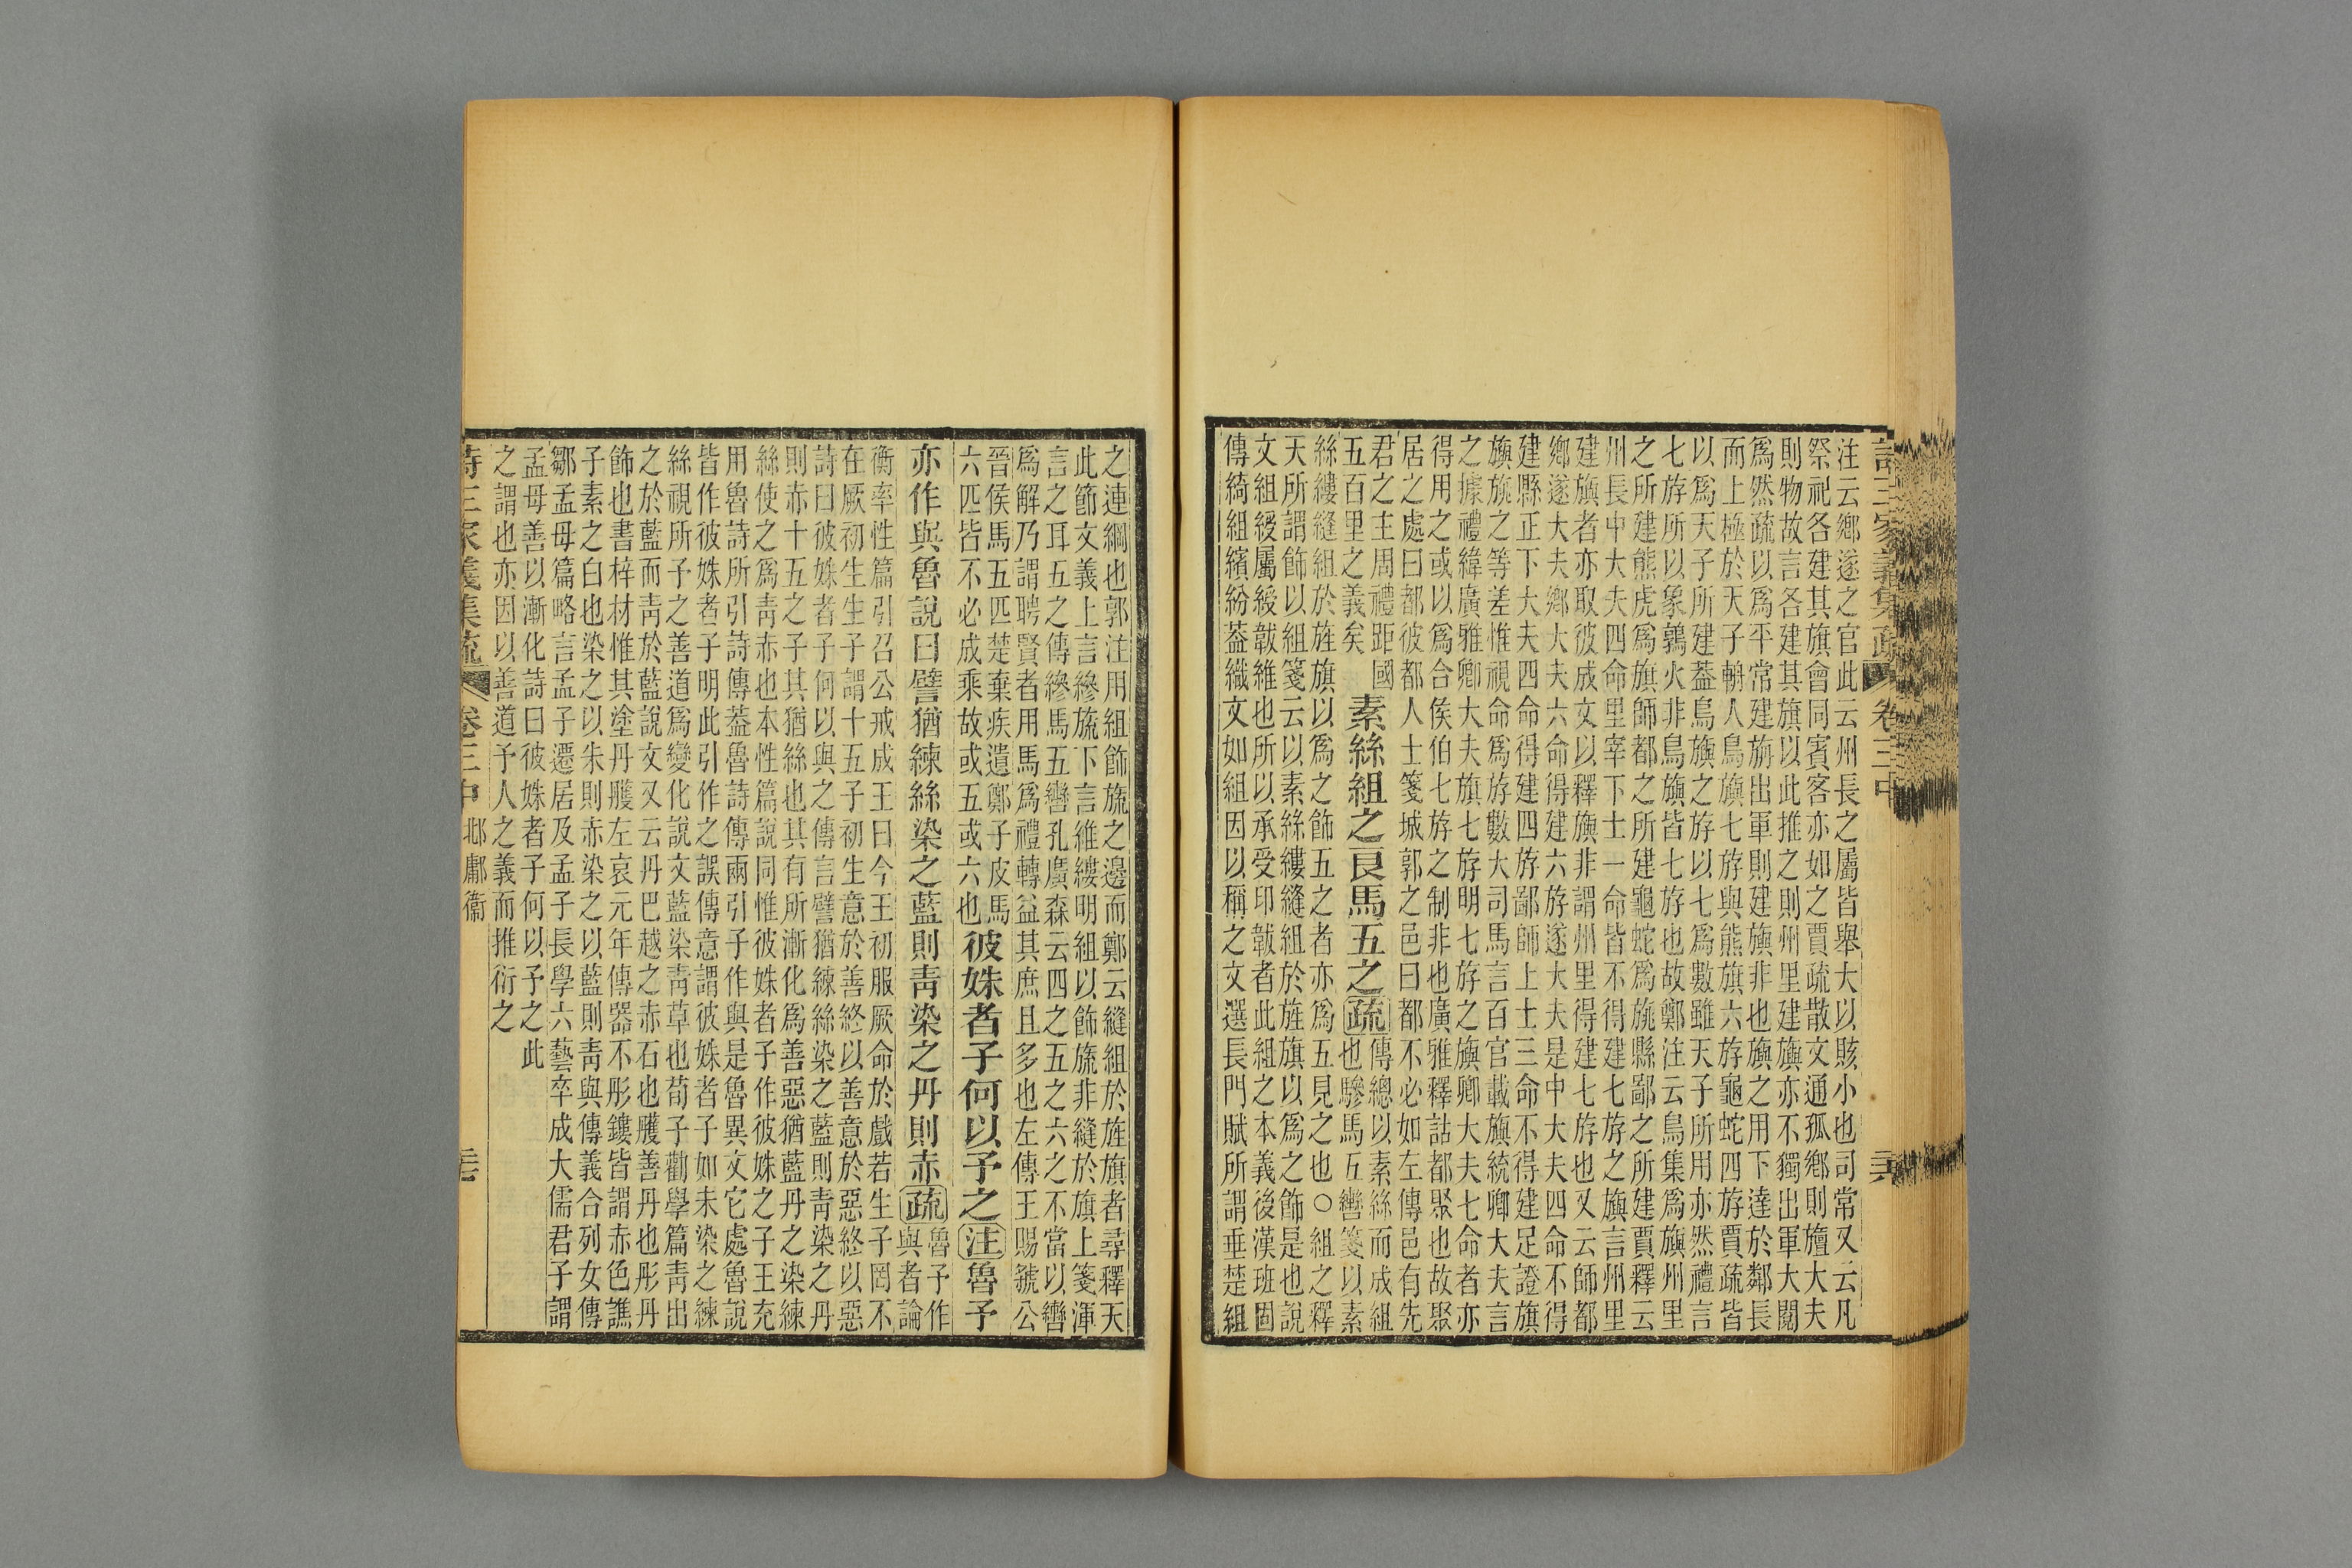 詩三家義集疏 卷三中
注云鄉遂之官此云州長之屬皆舉大以賅小也司常又云凡
祭祀各建其旗會同賓客亦如之賈疏散文通孤鄉則旜大夫
則物故言各建其旗以此推之則州里建旟亦不獨出軍大閱
爲然疏以爲平常建旃出軍則建旟非也旟之用下達於鄰長
而上極於天子輈人鳥旟七斿與熊旗六斿龜蛇四斿賈疏皆
以爲天子所建葢鳥旟之斿以七爲數雖天子所用亦然禮言
七斿所以象鶉火非鳥旟皆七斿也故鄭注云鳥集爲旟州里
之所建熊虎爲旗師都之所建龜蛇爲旐縣鄙之所建賈釋云
州長中大夫四命里宰下士一命皆不得建七斿之旟言州里
建旟者亦取彼成文以釋旟非謂州里得建七斿也又云師都
鄉遂大夫鄉大夫六命得建六斿遂大夫是中大夫四命不得
建縣正下大夫四命得建四斿鄙師上士三命不得建足證旗
旟旐之等差惟視命爲斿數大司馬言百官載旟統卿大夫言
之據禮緯廣雅卿大夫旟七斿明七斿之旟卿大夫七命者亦
得用之或以爲合侯伯七斿之制非也廣雅釋詁都聚也故聚
居之處曰都彼都人士箋城郭之邑曰都不必如左傳邑有先
君之主周禮距國
五百里之義矣
素絲組之良馬五之疏
傳總以素絲而成組
也驂馬五轡箋以素
絲縷縫組於旌旗以爲之飾五之者亦爲五見之也○組之釋
天所謂飾以組箋云以素絲縷縫組於旌旗以爲之飾是也說
文組綬屬綬韍維也所以承受印韍者此組之本義後漢班固
傳綺組繽紛葢織文如組因以稱之文選長門賦所謂垂楚組
之連綱也郭注用組飾旒之邊而鄭云縫組於旌旗者尋釋天
此節文義上言縿旒下言維縷明組以飾旒非縫於旗上箋渾
言之耳五之傳縿馬五轡孔廣森云四之五之六之不當以轡
爲解乃謂聘賢者用馬爲禮轉益其庶且多也左傳王賜虢公
晉侯馬五匹楚棄疾遺鄭子皮馬
六匹皆不必成乘故或五或六也
彼姝者子何以予之注魯予
亦作與魯說曰譬猶練絲染之藍則青染之丹則赤疏
魯予作
與者論
衡率性篇引召公戒成王曰今王初服厥命於戲若生子罔不
在厥初生生子謂十五子初生意於善終以善意於惡終以惡
詩曰彼姝者子何以與之傳言譬猶練絲染之藍則青染之丹
則赤十五之子其猶絲也其有所漸化爲善惡猶藍丹之染練
絲使之爲青赤也本性篇說同惟彼姝者子作彼姝之子王充
用魯詩所引詩傳葢魯詩傳兩引子作與是魯異文它處魯說
皆作彼姝者子明此引作之誤傳意謂彼姝者子如未染之練
絲視所予之善道爲變化說文藍染青草也荀子勸學篇青出
之於藍而青於藍說文又云丹巴越之赤石也雘善丹也彤丹
飾也書梓材惟其塗丹雘左哀元年傳器不彤鏤皆謂赤色譙
子素之白也染之以朱則赤染之以藍則青與傳義合列女傳
鄒孟母篇略言孟子遷居及孟子長學六藝卒成大儒君子謂
孟母善以漸化詩曰彼姝者子何以予之此
之謂也亦因以善道予人之義而推衍之
詩三家義集疏 卷三中 邶鄘衞